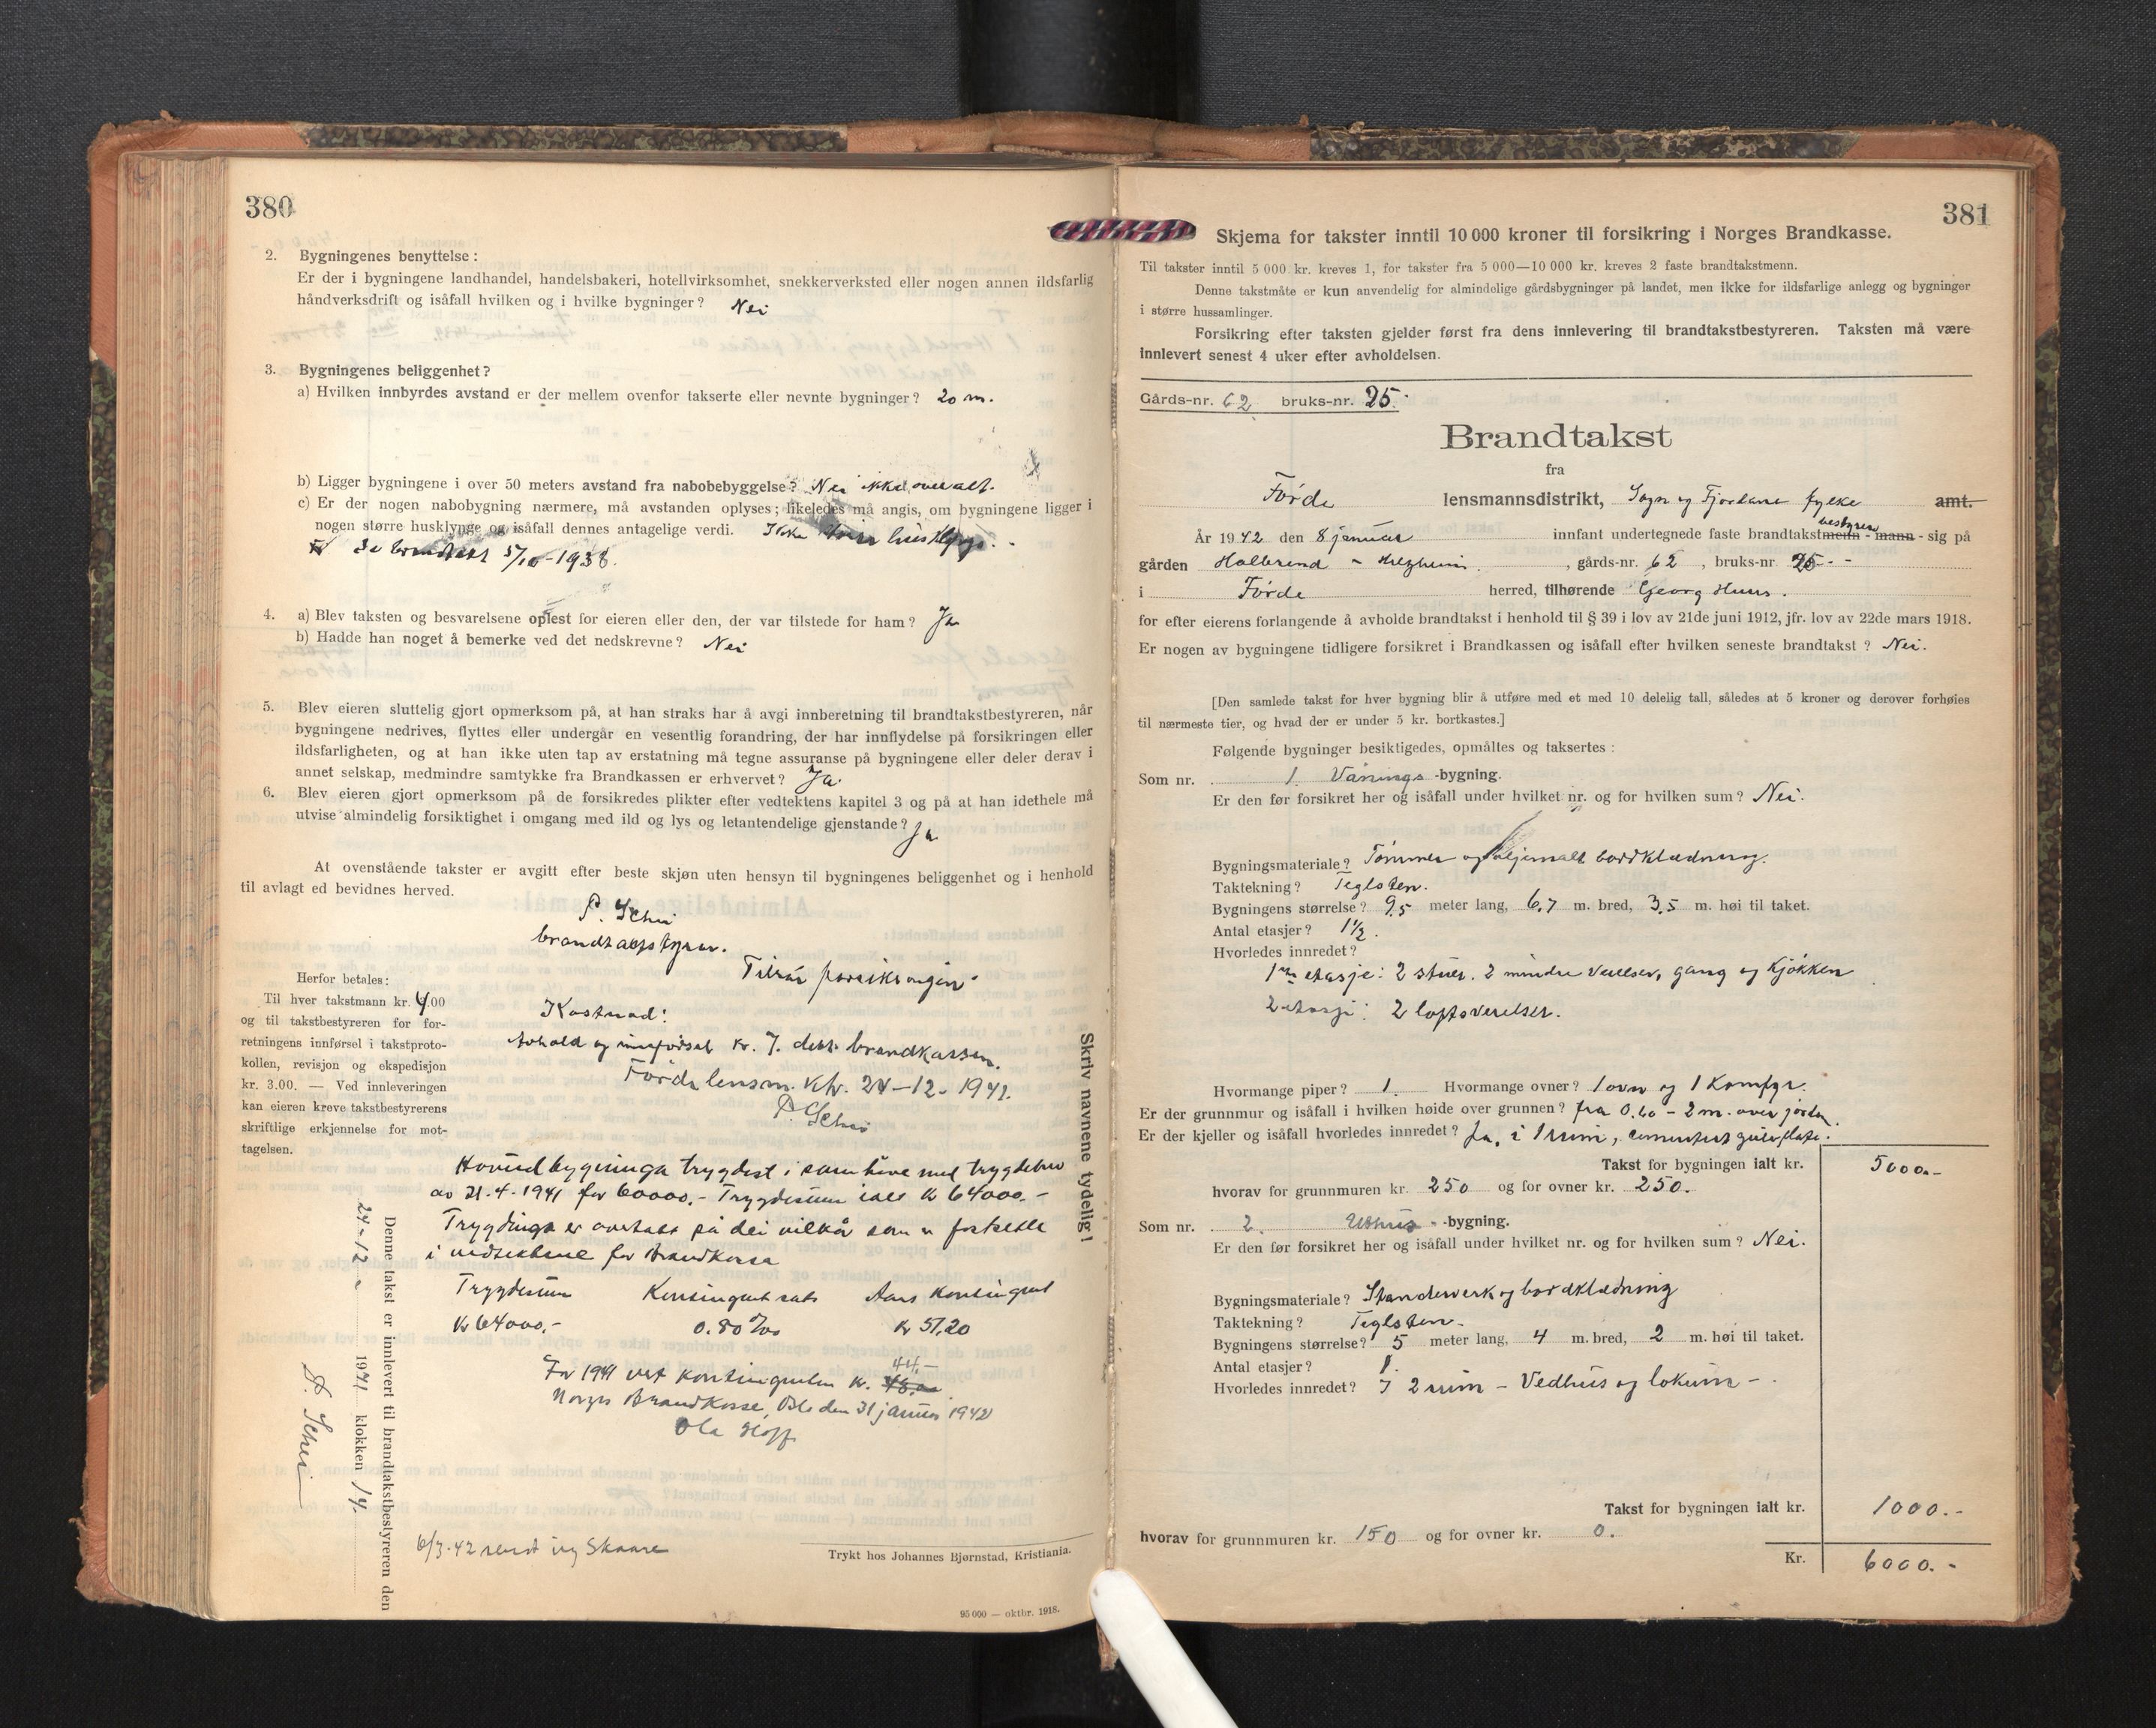 380
2. Bygningenes benyttelse:
Er der i bygningene landhandel, handelsbakeri, hotellvirksomhet, snekkerverksted eller nogen annen ildsfarlig
håndverksdrift og isåfall hvilken og i hvilke bygninger? Nei
3. Bygningenes beliggenhet?
a) Hvilken innbyrdes avstand er der mellem ovenfor takserte eller nevnte bygninger? 20 m.
b) Ligger bygningene i over 50 meters avstand fra nabobebyggelse? Nei ikke overalt.
c) Er der nogen nabobygning nærmere, må avstanden oplyses; likeledes må angis, om bygningene ligger i
nogen større husklynge og isåfall dennes antagelige verdi. Ikke
Se brandtakst 5/10-1938.
4. a) Blev taksten og besvarelsene oplest for eieren eller den, der var tilstede for ham? Ja
b) Hadde han noget å bemerke ved det nedskrevne? Nei
5. Blev eieren sluttelig gjort opmerksom på, at han straks har å avgi innberetning til brandtakstbestyreren, når
bygningene nedrives, flyttes eller undergår en vesentlig forandring, der har innflydelse på forsikringen eller
ildsfarligheten, og at han ikke uten tap av erstatning må tegne assuranse på bygningene eller deler derav i
annet selskap, medmindre samtykke fra Brandkassen er erhvervet? Ja.
6. Blev eieren gjort opmerksom på de forsikredes plikter efter vedtektens kapitel 3 og på at han idethele må
utvise almindelig forsiktighet i omgang med ild og lys og letantendelige gjenstande? Ja
At ovenstående takster er avgitt efter beste skjøn uten hensyn til bygningenes beliggenhet og i henhold
til avlagt ed bevidnes herved.
P. Schei
Tilrår forsikringen.
Herfor betales:
Til hver takstmann kr. 4.00
og til takstbestyreren for for-
retningens innførsel i takstproto-
kollen, revisjon og ekspedisjon
kr. 3.00. — Ved innleveringen
kan eieren kreve takstbestyrerens
skriftlige erkjennelse for mot-
tagelsen.
Kostnad:
Avhold og innførsel kr. 7. brandkassen.
Førde lensm. ktr. 24-12-1941.
P. Schei
Hovudbygninga trygdest i samhøve med trygdebrev
av 21.4.1941 for 60000.- Trygdesum ialt kr 64000.-
Trygdinga er avtalt på dei vilkår som er fastsette
i vedtektene for Brandkassa
Trygdesum Kontingentsats Aars kontingent
Kr 64000.- 0.80 ‰ kr 51,20
44.-
For 1941 vert kontingenten kr.
Norges Brandkasse, Oslo den 31 januar 1942
Ola Hoff
6/3-42 sendt Skaare
Denne takst er innlevert til brandtakstbestyreren den
24-12- 1941 klokken 14.
P. Schei
Skriv navnene tydelig!
Trykt hos Johannes Bjørnstad, Kristiania.
95 000 — oktbr. 1918.
381
Skjema for takster inntil 10 000 kroner til forsikring i Norges Brandkasse.
Til takster inntil 5 000 kr. kreves 1, for takster fra 5 000—10 000 kr. kreves 2 faste brandtakstmenn.
Denne takstmåte er kun anvendelig for almindelige gårdsbygninger på landet, men ikke for ildsfarlige anlegg og bygninger
i større hussamlinger.
Forsikring efter taksten gjelder først fra dens innlevering til brandtakstbestyreren. Taksten må være
innlevert senest 4 uker efter avholdelsen.
Gårds-nr. 62 bruks-nr. 25.
Brandtakst
fra
Førde lensmannsdistrikt, Sogn og Fjordane fylke amt.
bestyrer
År 1942 den 8 januar innfant undertegnede faste brandtakstmenn - mann - sig på
gården Halbrend - , gårds-nr. 62 , bruks-nr. 25 - -
i Førde herred, tilhørende Georg Huus.
for efter eierens forlangende å avholde brandtakst i henhold til § 39 i lov av 21de juni 1912, jfr. lov av 22de mars 1918.
Er nogen av bygningene tidligere forsikret i Brandkassen og isåfall efter hvilken seneste brandtakst? Nei.
[Den samlede takst for hver bygning blir å utføre med et med 10 delelig tall, således at 5 kroner og derover forhøies
til nærmeste tier, og hvad der er under 5 kr. bortkastes.]
Følgende bygninger besiktigedes, opmåltes og taksertes:
Som nr. 1 Vånings -bygning.
Er den før forsikret her og isåfall under hvilket nr. og for hvilken sum? Nei.
Bygningsmateriale? Tømmer og oljemalt bordklædning.
Taktekning? Teglsten.
Bygningens størrelse? 9,5 meter lang, 6,7 m. bred, 3,5 m. høi til taket.
Antal etasjer? 1½.
Hvorledes innredet?
1ste etasje: 2 stuer. 2 mindre værelser, gang og kjøkken
2 etasje: 2 loftsværelser.
Hvormange piper? 1. Hvormange ovner? 1 ovn og 1 komfyr.
Er der grunnmur og isåfall i hvilken høide over grunnen? fra 0.60 - 2 m. over jorden.
Er der kjeller og isåfall hvorledes innredet? Ja, i 1 rum, cementert gulvflate.
Takst for bygningen ialt kr. 5000.-
hvorav for grunnmuren kr. 250 og for ovner kr. 250.
Som nr. 2. Uthus - -bygning.
Er den før forsikret her og isåfall under hvilket nr. og for hvilken sum? Nei.
Bygningsmateriale? Standerverk og bordklædning
Taktekning? Teglsten.
Bygningens størrelse? 5 meter lang, 4 m. bred, 2 m. høi til taket.
Antal etasjer? 1.
Hvorledes innredet? I 2 rum - Vedhus og lokum - .
Takst for bygningen ialt kr. 1000.-
hvorav for grunnmuren kr. 150 og for ovner kr. 0.
Kr. 6000.-